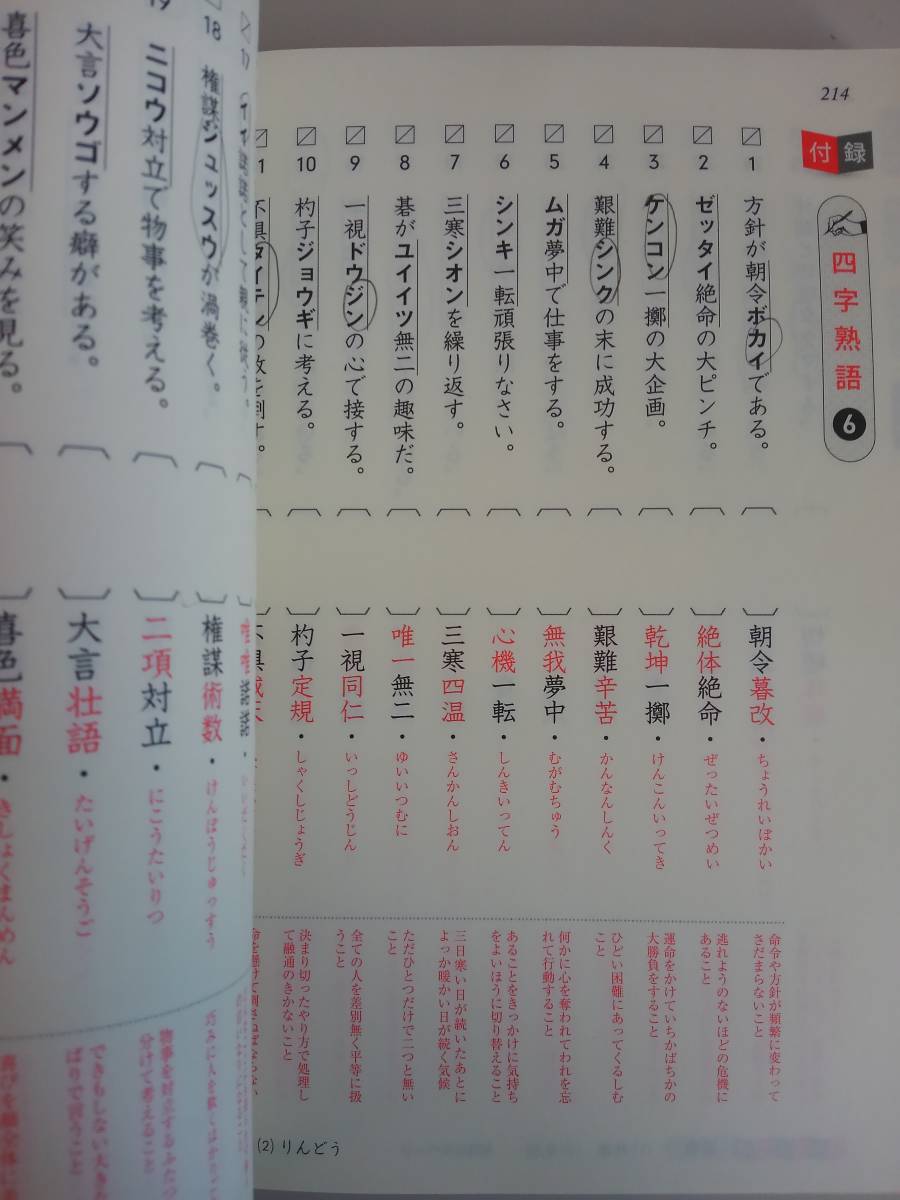 214
付録
四字熟語 6
1 方針が朝令ボカイである。
朝令暮改・ちょうれいぼかい
命令や方針が頻繁に変わって
さだまらないこと
2 ゼッタイ絶命の大ピンチ。
絶体絶命・ぜったいぜつめい
逃れようのないほどの危機に
あること
3 ケンコン一擲の大企画。
乾坤一擲・けんこんいってき
運命をかけていちかばちかの
大勝負をすること
4 艱難シンクの末に成功する。
艱難辛苦・かんなんしんく
ひどい困難にあってくるしむ
こと
5 ムガ夢中で仕事をする。
無我夢中・むがむちゅう
何かに心を奪われてわれを忘
れて行動すること
6 シンキ一転頑張りなさい。
心機一転・しんきいってん
あることをきっかけに気持ち
をよいほうに切り替えること
7 三寒シオンを繰り返す。
三寒四温・さんかんしおん
三日寒い日が続いたあとに
よっか暖かい日が続く気候
8 碁がユイイツ無二の趣味だ。
唯一無二・ゆいいつむに
ただひとつだけで二つと無い
こと
9 一視ドウジンの心で接する。
一視同仁・いっしどうじん
全ての人を差別無く平等に扱
うこと
10 杓子ジョウギに考える。
杓子定規・しゃくしじょうぎ
決まり切ったやり方で処理し
て融通のきかないこと
(2) りんどう
17
18 権謀ジュッスウが渦巻く。
権謀術数・けんぼうじゅっすう
19 ニコウ対立で物事を考える。
二項対立・にこうたいりつ
分けて考えること
大言ソウゴする癖がある。
大言壮語・たいげんそうご
喜色マンメンの笑みを見る。
喜色満面・きしょくまんめん